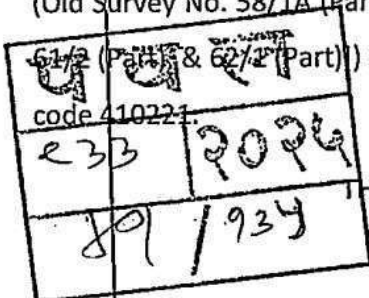 (Old Survey No. 58/1A (Par
61/2 (Part) & 62/1 (Part))
प व ल
code 410221.
९३३ २०२५
४१ / १३५